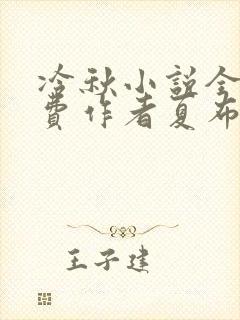 冷秋小说全
费作者夏布
王子建